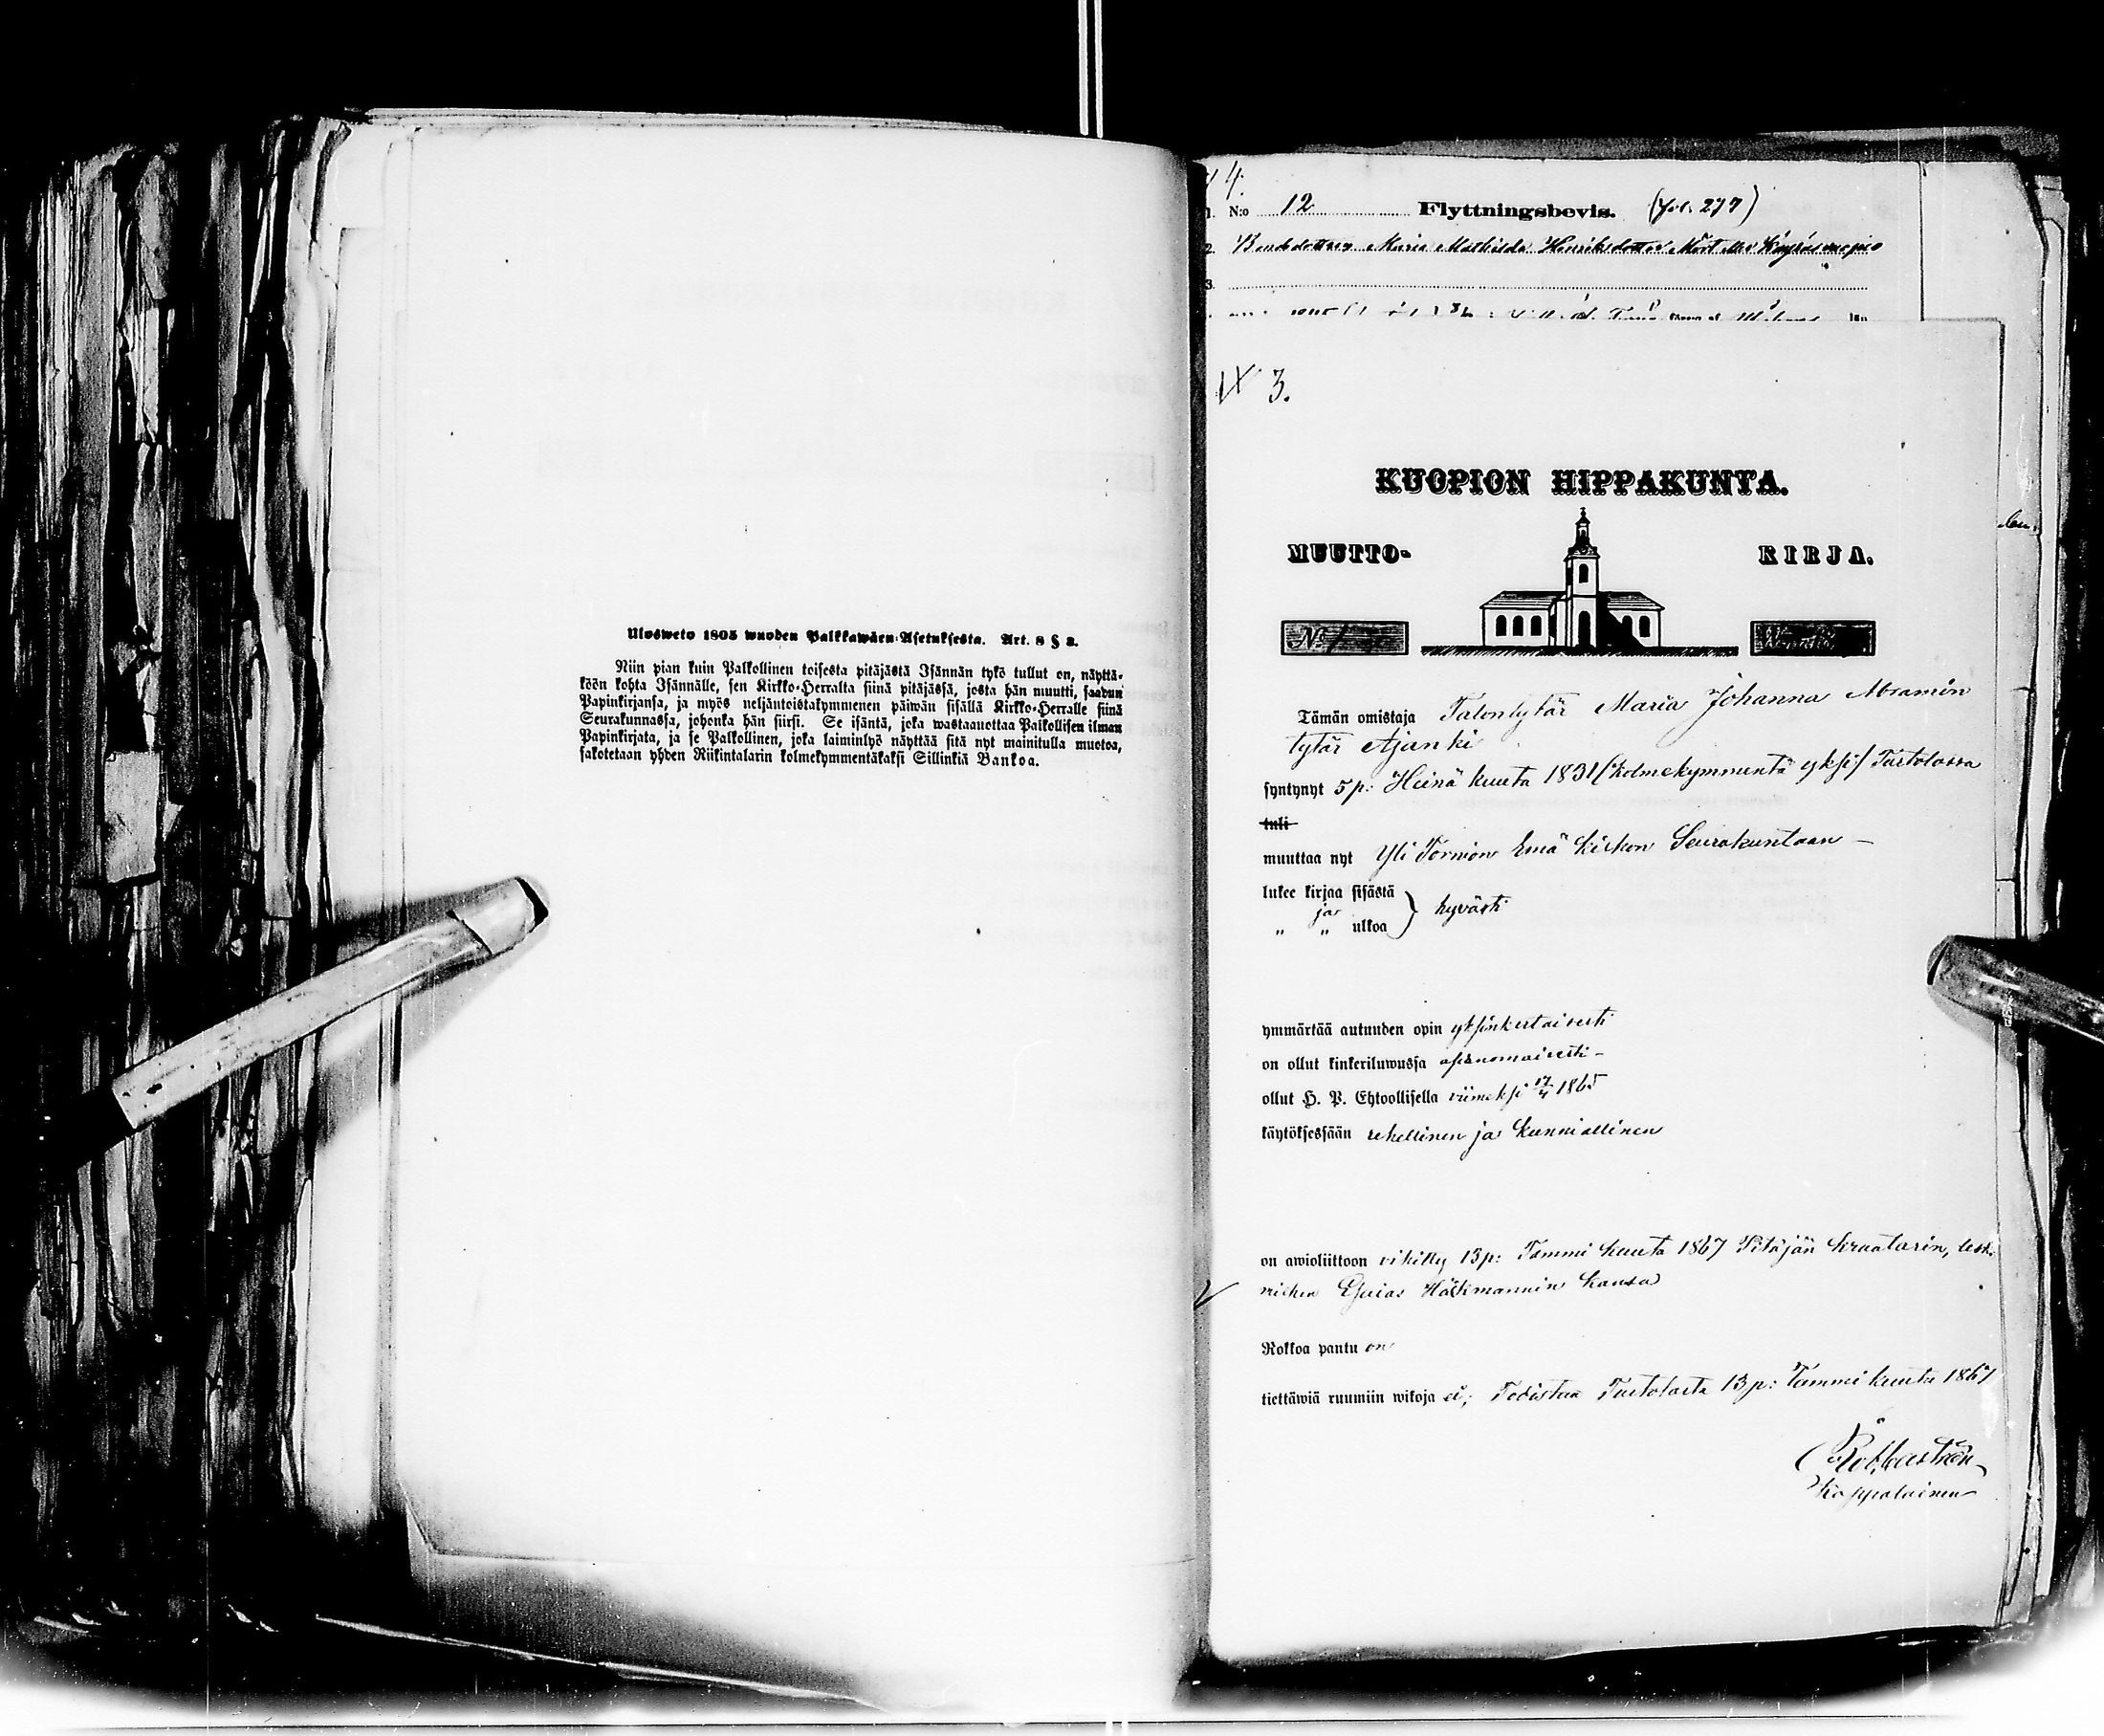 Ulosweto 1805 wuoden Palkkawäen-Asetuksesta. Art. 8 § 2.
Niin pian kuin Palkollinen toisesta pitäjästä Isännän tykö tullut on, näyttä-
köön kohta Isännälle, sen Kirkko-Herralta siinä pitäjässä, josta hän muutti, saadun
Papinkirjansa, ja myös neljäntoistakymmenen päiwän sisällä Kirkko-Herralle siinä
Seurakunnassa, johonka hän siirsi. Se isäntä, joka wastaanottaa Palkollisen ilman
Papinkirjata, ja se Palkollinen, joka laiminlyö näyttää sitä nyt mainitulla muotoa,
sakotetaan yhden Riikintalarin kolmekymmentäkaksi Sillinkiä Bankoa.
4.
1. N:o 12 Flyttningsbevis. (fol. 277)
2. Bondedottren Maria Mathilda Henriksdotter
3.
3.
KUOPION HIPPAKUNTA.
MUUTTO- KIRJA.
N:
Tämän omistaja Talontytär Maria Johanna Abramin
tytär Ajanki
syntynyt 5 p: Heinä kuuta 1831 (kolmekymmentä yksi) Turtolassa
tuli
muuttaa nyt Yli Tornion Emä Kirkon Seurakuntaan —
lukee kirjaa sisästä
ja hyvästi
" " ulkoa
ymmärtää autuuden opin yksinkertaisesti
on ollut kinkeriluwussa ahkeraisesti -
ollut H. P. Ehtoollisella viimeksi 17/4 1865
käytöksessään rehellinen ja kunniallinen
on awioliittoon vihitty 13 p: Tammi kuuta 1867 Pitäjän kraatarin, lesk.
miehen Esaias Häckmannin kansa
Rokkoa pantu on
tiettäwiä ruumiin wikoja ei; Todistaa Turtolasta 13 p: Tammi kuuta 1867
Kappalainen